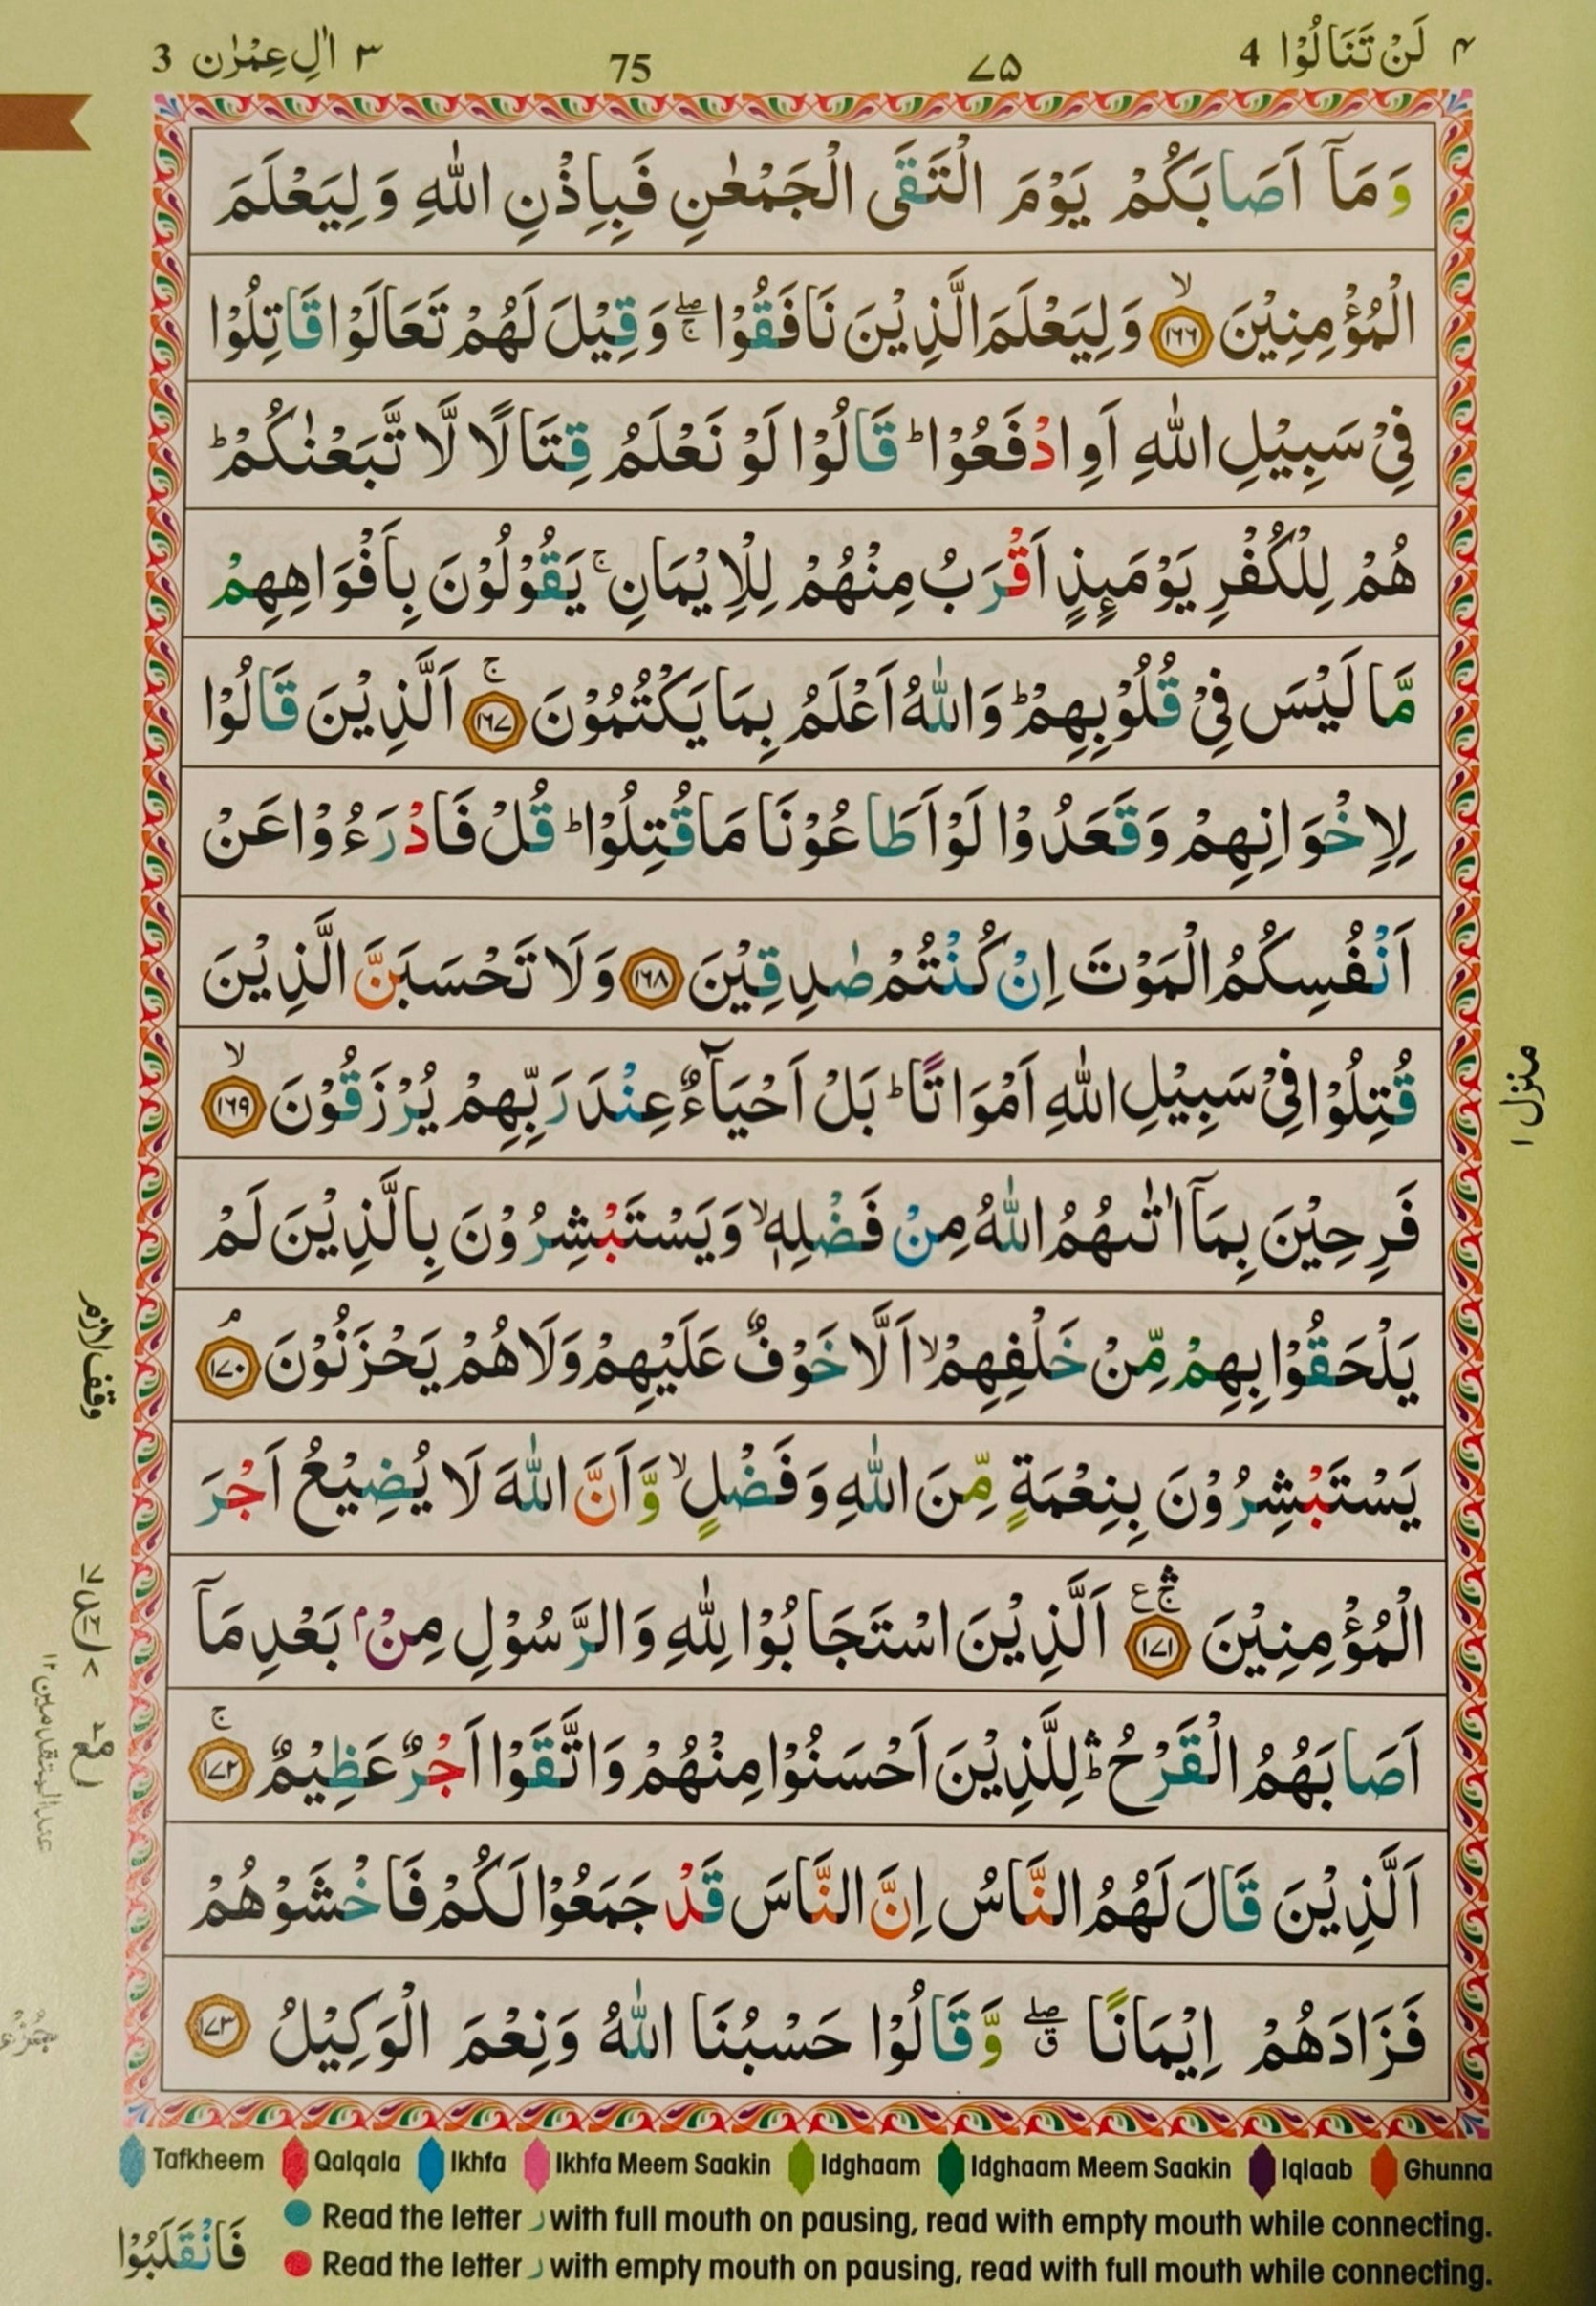 ٤ لَنْ تَنَالُوْا 4 ۷۵ 75 ٣ اٰلِ عِمْرٰن 3
وَمَاۤ اَصَابَكُمْ يَوْمَ الْتَقَى الْجَمْعٰنِ فَبِاِذْنِ اللّٰهِ وَلِيَعْلَمَ
الْمُؤْمِنِيْنَ ۙ‏﴿۱۶۶﴾ وَلِيَعْلَمَ الَّذِيْنَ نَافَقُوْا ۖۚ وَقِيْلَ لَهُمْ تَعَالَوْا قَاتِلُوْا
فِىْ سَبِيْلِ اللّٰهِ اَوِ ادْفَعُوْا ؕ قَالُوْا لَوْ نَعْلَمُ قِتَالًا لَّا تَّبَعْنٰكُمْ ؕ
هُمْ لِلْكُفْرِ يَوْمَىِٕذٍ اَقْرَبُ مِنْهُمْ لِلْاِيْمَانِ ۚ يَقُوْلُوْنَ بِاَفْوَاهِهِمْ
مَّا لَيْسَ فِىْ قُلُوْبِهِمْ ؕ وَاللّٰهُ اَعْلَمُ بِمَا يَكْتُمُوْنَ ۚ‏﴿۱۶۷﴾ اَلَّذِيْنَ قَالُوْا
لِاِخْوَانِهِمْ وَقَعَدُوْا لَوْ اَطَاعُوْنَا مَا قُتِلُوْا ؕ قُلْ فَادْرَءُوْا عَنْ
اَنْفُسِكُمُ الْمَوْتَ اِنْ كُنْتُمْ صٰدِقِيْنَ ﴿۱۶۸﴾ وَلَا تَحْسَبَنَّ الَّذِيْنَ
قُتِلُوْا فِىْ سَبِيْلِ اللّٰهِ اَمْوَاتًا ؕ بَلْ اَحْيَآءٌ عِنْدَ رَبِّهِمْ يُرْزَقُوْنَ ۙ‏﴿۱۶۹﴾
فَرِحِيْنَ بِمَاۤ اٰتٰىهُمُ اللّٰهُ مِنْ فَضْلِهٖ ۙ وَيَسْتَبْشِرُوْنَ بِالَّذِيْنَ لَمْ
يَلْحَقُوْا بِهِمْ مِّنْ خَلْفِهِمْ ۙ اَلَّا خَوْفٌ عَلَيْهِمْ وَلَا هُمْ يَحْزَنُوْنَ ۘ‏﴿۱۷۰﴾
يَسْتَبْشِرُوْنَ بِنِعْمَةٍ مِّنَ اللّٰهِ وَفَضْلٍ ۙ وَّاَنَّ اللّٰهَ لَا يُضِيْعُ اَجْرَ
الْمُؤْمِنِيْنَ ۛۚ ع ﴿۱۷۱﴾ اَلَّذِيْنَ اسْتَجَابُوْا لِلّٰهِ وَالرَّسُوْلِ مِنْۢ بَعْدِ مَاۤ
اَصَابَهُمُ الْقَرْحُ ۛؕ لِلَّذِيْنَ اَحْسَنُوْا مِنْهُمْ وَاتَّقَوْا اَجْرٌ عَظِيْمٌ ۚ‏﴿۱۷۲﴾
اَلَّذِيْنَ قَالَ لَهُمُ النَّاسُ اِنَّ النَّاسَ قَدْ جَمَعُوْا لَكُمْ فَاخْشَوْهُمْ
فَزَادَهُمْ اِيْمَانًا ۖۗ وَّقَالُوْا حَسْبُنَا اللّٰهُ وَنِعْمَ الْوَكِيْلُ ﴿۱۷۳﴾
منزل ۱
وقف لازم
Tafkheem Qalqala Ikhfa Ikhfa Meem Saakin Idghaam Idghaam Meem Saakin Iqlaab Ghunna
Read the letter ر with full mouth on pausing, read with empty mouth while connecting.
Read the letter ر with empty mouth on pausing, read with full mouth while connecting.
فَانْقَلَبُوْا